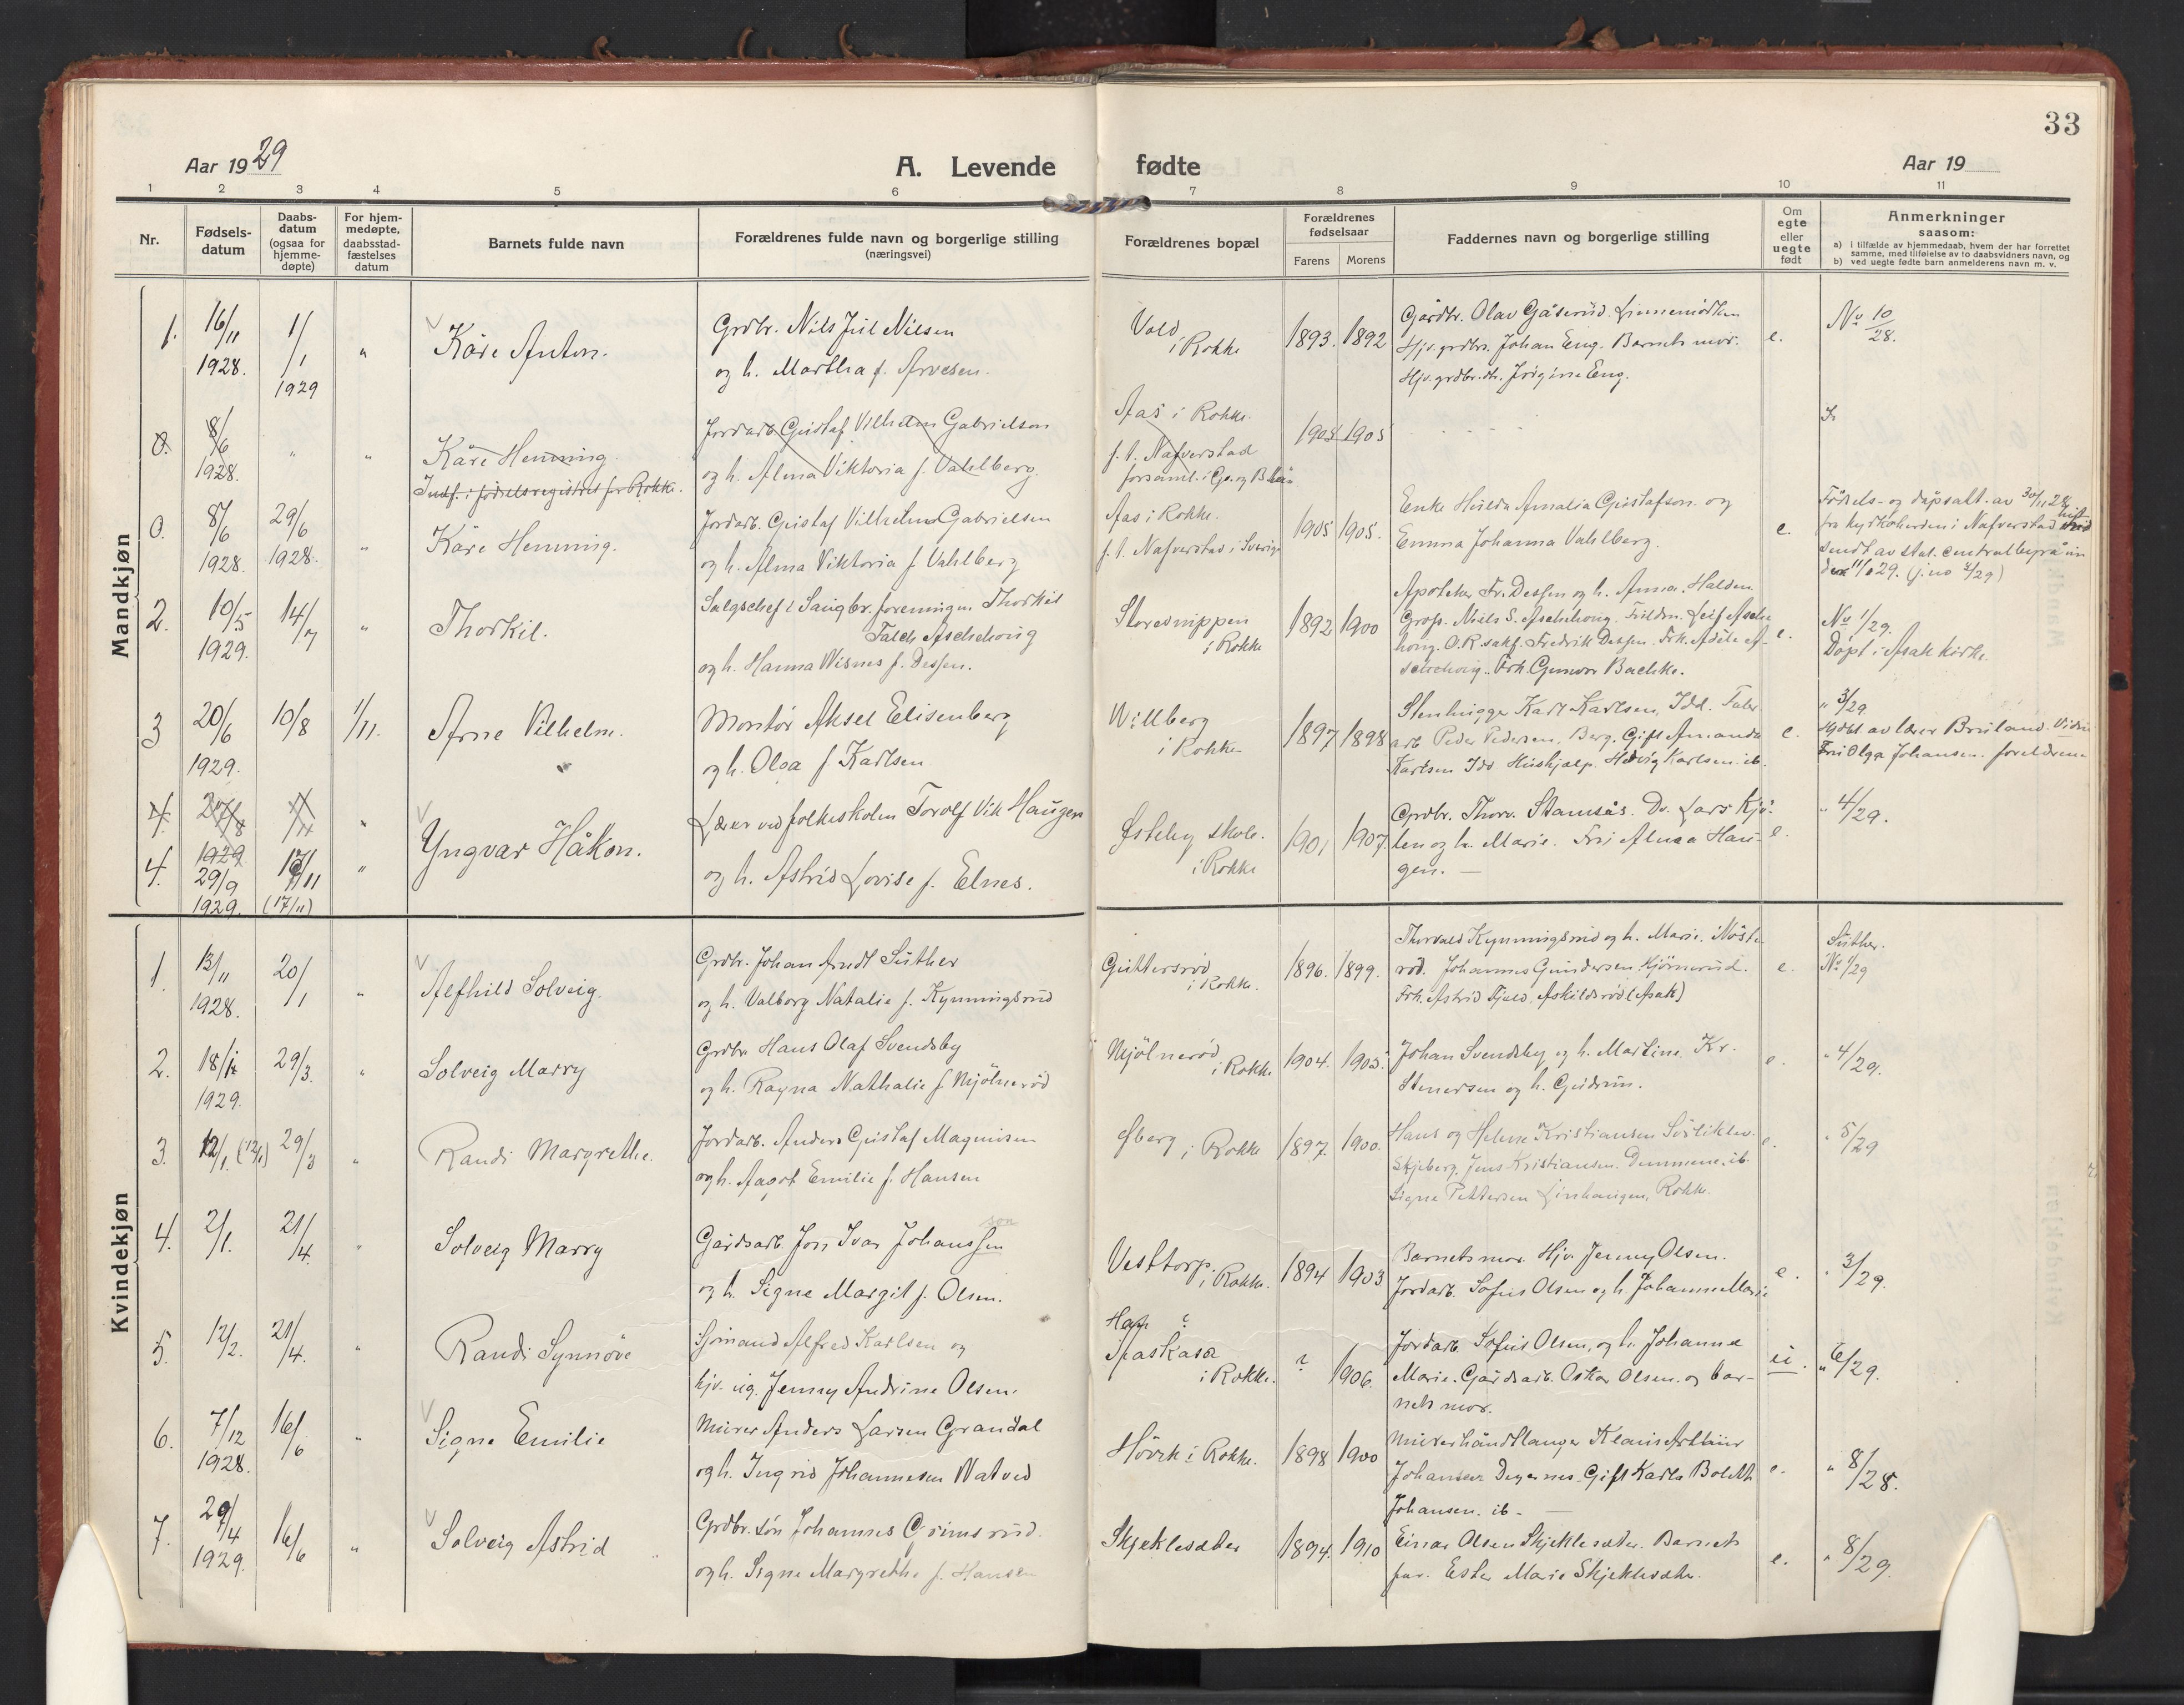 33
Aar 1929
A. Levende fødte
Aar 19
1 2 3 4 5 6 7 8 9 10 11
Nr.
Fødsels-
datum
Daabs-
datum
(ogsaa for
hjemme-
døpte)
For hjem-
medøpte,
daabsstad-
fæstelses
datum
Barnets fulde navn
Forældrenes fulde navn og borgerlige stilling
(næringsvei)
Forældrenes bopæl
Forældrenes
fødselsaar
Farens Morens
Faddernes navn og borgerlige stilling
Om
egte
eller
uegte
født
Anmerkninger
saasom:
a) i tilfælde av hjemmedaab, hvem der har forrettet
samme, med tilføielse av to daabsvidners navn, og
b) ved uegte fødte barn anmelderens navn m. v.
Mandkjøn
1. 16/11 1928. 1/1 1929 " Kåre Anton.
Grdbr. Nils Juul Nilsen
og h. Martha f. Arvesen.
Vold
i Rokke
1893. 1892
Gårdbr. Olav Gåserud.
Hjv. grdbr. Johan Eng. Barnets mor.
Hjv. grdbr. dt. Jørgine Eng.
e.
No 10/28.
0. 8/6 1928. " " Kåre Henning.
Indf. i fødselsregistret for Rokke.
Jordarb. Gustaf Vilhelm Gabrielson
og h. Alma Viktoria f. Vahlberg.
Aas i Rokke.
f. t. Nafverstad
forsaml. i
1905 1905
0. 8/6 1928. 29/6 1928. " Kåre Henning.
Jordarb. Gustaf Vilhelm Gabrielsen
og h. Alma Viktoria f. Vahlberg
Aas i Rokke.
f. t. Nafverstad i Sverige
1905 1905.
Enke Hulda Amalia Gustafson og
Emma Johanna Vahlberg.
e.
Fødels- og dåpsatt. av 30/11 28
fra kyrkoherden i Nafverstad
sendt av stat. centralbyrå
11/1 29. (j.no 4/29)
2. 10/5 1929. 14/7 " Thorkil.
Salgschef i Saugbr. foreningen Thorkil
Falch Aschehoug
og h. Hanna Wisnes f. Dessen.
Storesnippen
i Rokke
1892 1900
Apoteker Fr. Dessen og h. Anna. Halden.
Gross. Niels S. Aschehoug. Leif Asche-
houg. O.R.sakf. Fredrik Dessen. Frk. Adele A-
schehoug. Frk. Gunvor Bachke.
e.
No 1/29.
Døpt i Asak kirke.
3 20/6 1929. 10/8 1/11. Arne Vilhelm.
Montør Aksel Elisenberg
og h. Olga f. Karlsen
Willberg
i Rokke
1897 1898
Stenhugger Karl Karlsen, Idd. Fabr.
arb. Peder Pedersen, Berg. Gift Amanda
Karlsen Idd. Hushjælp. Hedvig Karlsen. ib.
e.
" 3/29
Hjdøbt av lærer Bruland. Vidn.
Fru Olga Johansen. foreldrene
4. 27/8 1929 "
4. 29/9 1929. 17/11 (17/11) " Yngvar Håkon.
Lærer ved folkeskolen Torolf Vik Haugen
og h. Astrid Lovise f. Elnes.
Østeby skole.
i Rokke
1901 1907.
Grdbr. Thorv. Stamsås. Do. Lars Kjø-
len og h. Marie. Fru Alma Hau-
gen. —
e.
" 4/29.
Kvindekjøn
1. 13/11 1928. 20/1 " Alfhild Solveig.
Grdbr. Johan Arndt Suther
og h. Valborg Natalie f. Kynningsrud
Guttersrød
i Rokke.
1896. 1899.
Thorvald Kynningsrud og h. Marie.
rød. Johannes Gundersen Kjørnerud.
Frk. Astrid Fjeld, Askildsrød (Asak)
e.
Suther.
No 1/29
2. 18/1 1929. 29/3. " Solveig Marry
Grdbr. Hans Olaf Svendsby
og h. Ragna Nathalie f. Mjølnerød
Mjølnerød
i Rokke
1904. 1905.
Johan Svendsby og h. Martine. Kr.
Stenersen og h. Gudrun.
e.
" 4/29.
3. 12/1. (12/1) 29/3 " Randi Margrethe.
Jordarb. Anders Gustaf Magnusen
og h. Aagot Emilie f. Hansen
Øberg i Rokke
1897. 1900.
Hans og Helene Kristiansen
Skjeberg. Jens Kristiansen. ib.
Signe Pettersen Linhaugen, Rokke.
e.
" 5/29
4. 2/1. 21/4. " Solveig Marry
Gårdsarb. Jon Ivar Johanssen
son
og h. Signe Margit f. Olsen.
Vesttorp.
i Rokke.
1894 1903
Barnets mor. Hjv. Jenny Olsen.
Jordarb. Sofus Olsen og h. Johanne Marie
e.
" 3/29.
5. 12/2. 21/4. " Randi Synnøve
Sjømand Alfred Karlsen og
hjv. ug. Jenny Andrine Olsen.
?
Aaskasa
i Rokke.
? 1906.
Jordarb. Sofus Olsen, og h. Johanne
Marie. Gårdsarb. Oskar Olsen. og bar-
nets mor.
u.
" 6/29.
6. 7/12 1928. 16/6 " Signe Emilie
Murer Anders Larsen Grandal
og h. Ingrid Johannesen Watved
Høvik i Rokke.
1898 1900
Murerhåndlanger Klaus Arthur
Johansen Degernes. Gift Karla Bolette
Johansen. ib. —
e.
" 8/28.
7. 29/4 1929. 16/6 " Solveig Astrid
Grdbr. søn Johannes Grimsrud.
og h. Signe Margrethe f. Hansen
Skjeklesæter
1894. 1910
Einar Olsen Skjeklesæter. Barnets
far. Ester Marie Skjeklesæter.
e.
" 8/29.